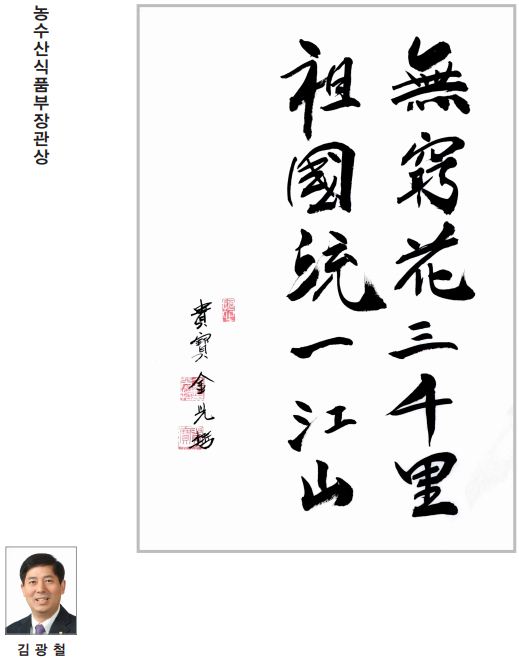 농수산식품부장관상
無窮花三千里
祖國統一江山
貴寶 金光
김광철